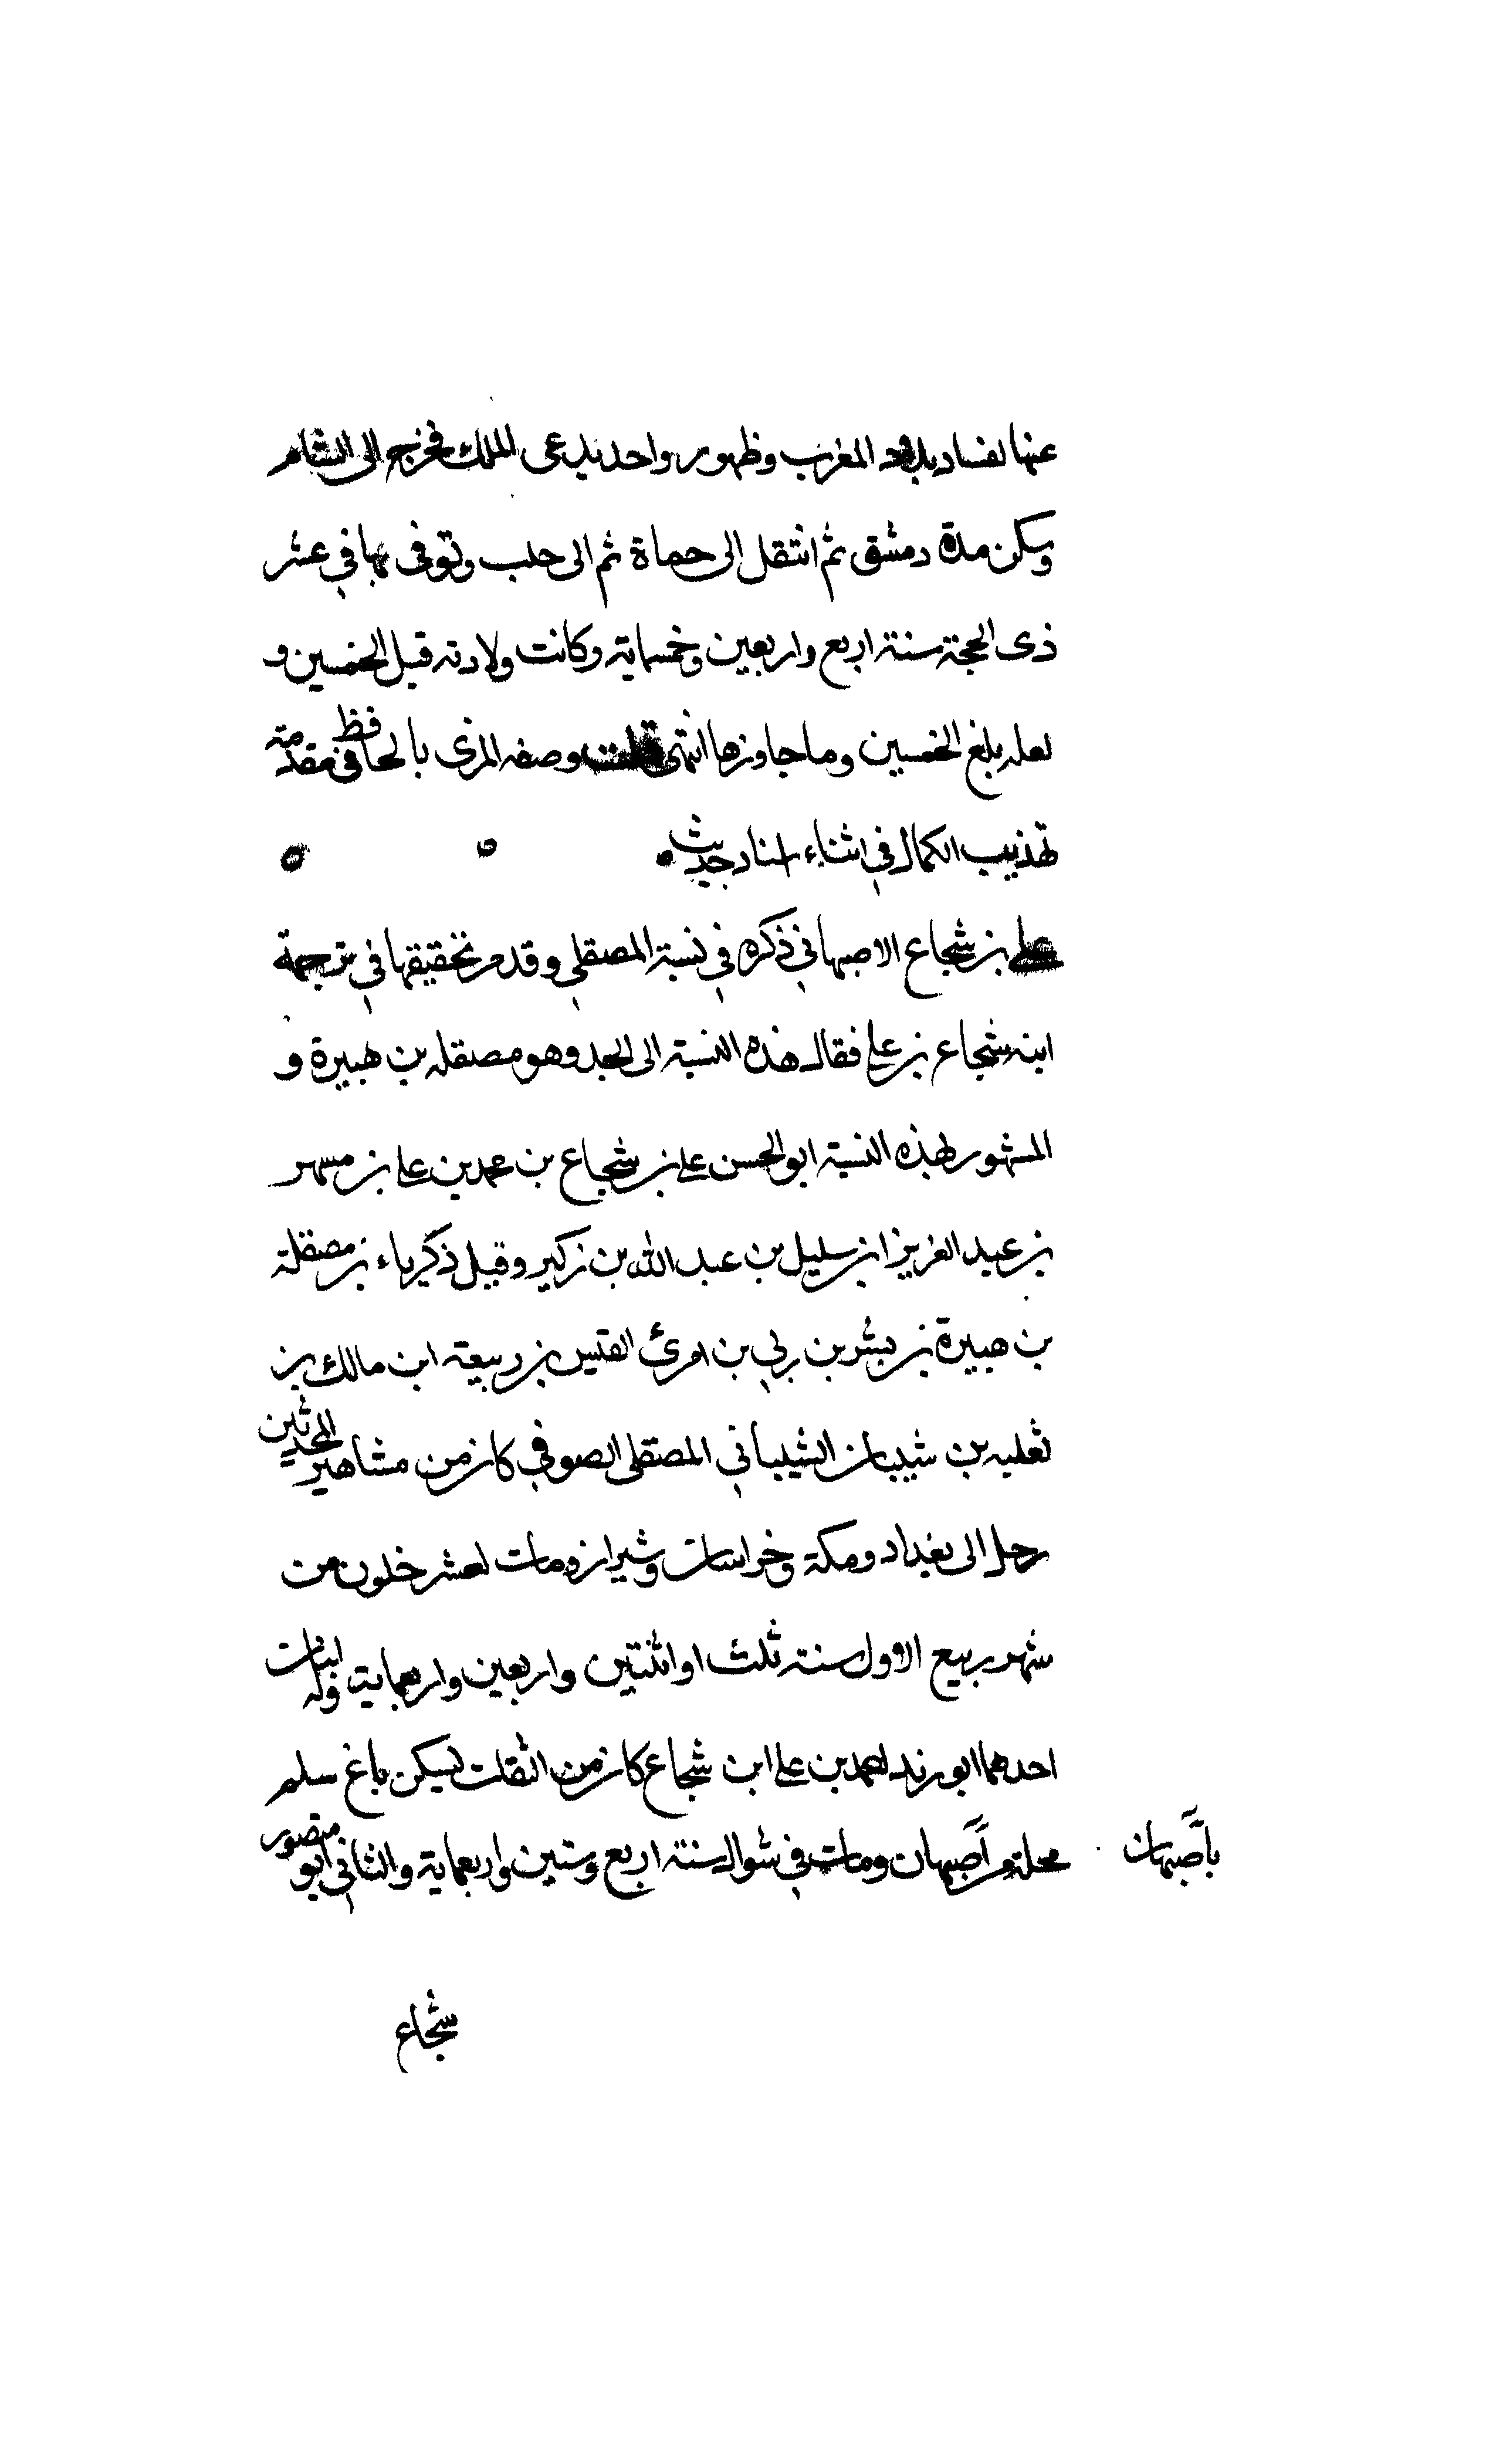 عنها لفساد بلاد المغرب وظهور واحد يدعى الملك فخرج الى الشام
وسكن مدة دمشق ثم انتقل الى حماة ثم الى حلب وتوفى بها في عشر
ذى الحجة سنة اربع واربعين وخمسماية وكانت ولادته قبل الخمسين و
لعله بلغ الخمسين وما جاوزها انتهى قلت وصفه المزى بالحافظ في مقدمة
تهذيب الكمال في اثناء اسناد حديث
على بن شجاع الاصبهاني ذكره في نسبة المصقلي وقد مر تحقيقها في ترجمة
ابنه شجاع بن على فقال هذه النسبة الى الجد وهو مصقله بن هبيرة و
المشهور بهذه النسبة ابو الحسن على بن شجاع بن محمد بن على بن مسهر
بن عبد العزيز ابن سليل بن عبد الله بن زكير وقيل ذكرياء بن مصقلة
بن هبيرة بن بشر بن يربي بن امرئ القيس بن ربيعة ابن مالك بن
ثعلبه بن شيبان الشيباني المصقلى الصوفي كان من مشاهير المحدثين
رحل الى بغداد ومكة وخراسان وشيراز ومات لعشر خلون من
شهر ربيع الاول سنة ثلث او اثنتين واربعين واربعماية وله ابنان
احدهما ابو زيد احمد بن على ابن شجاع كان من الثقات ليسكن باغ سلم
محلة من أصبهان ومات في شوال سنة اربع وستين واربعماية والثاني ابو منصور
بأصبهان
شجاع